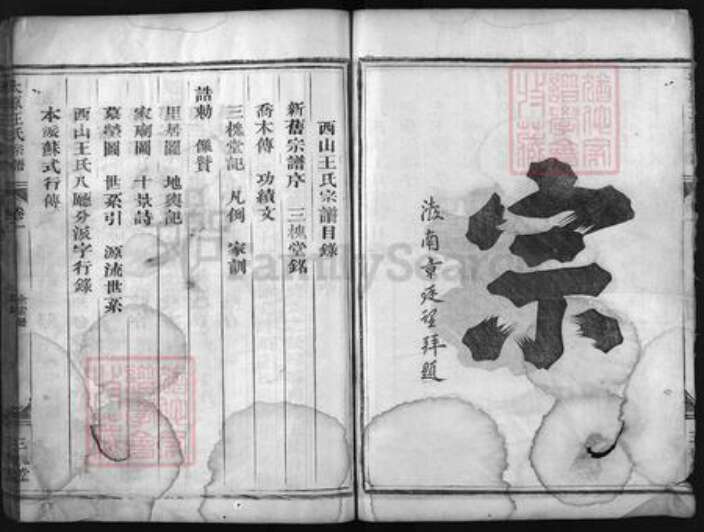 宗
南章廷理拜題
西山王氏宗譜目錄
新舊宗譜序 三槐堂銘
喬木傳 功績文
三槐堂記 凡例 家訓
誥勅 像贊
里居圖 地輿記
家廟圖 十景詩
墓塋圖 世系引 源流世系
西山王氏八廳分派字行錄
本派蘇式行傳
王氏宗譜
卷一
FamilySearch